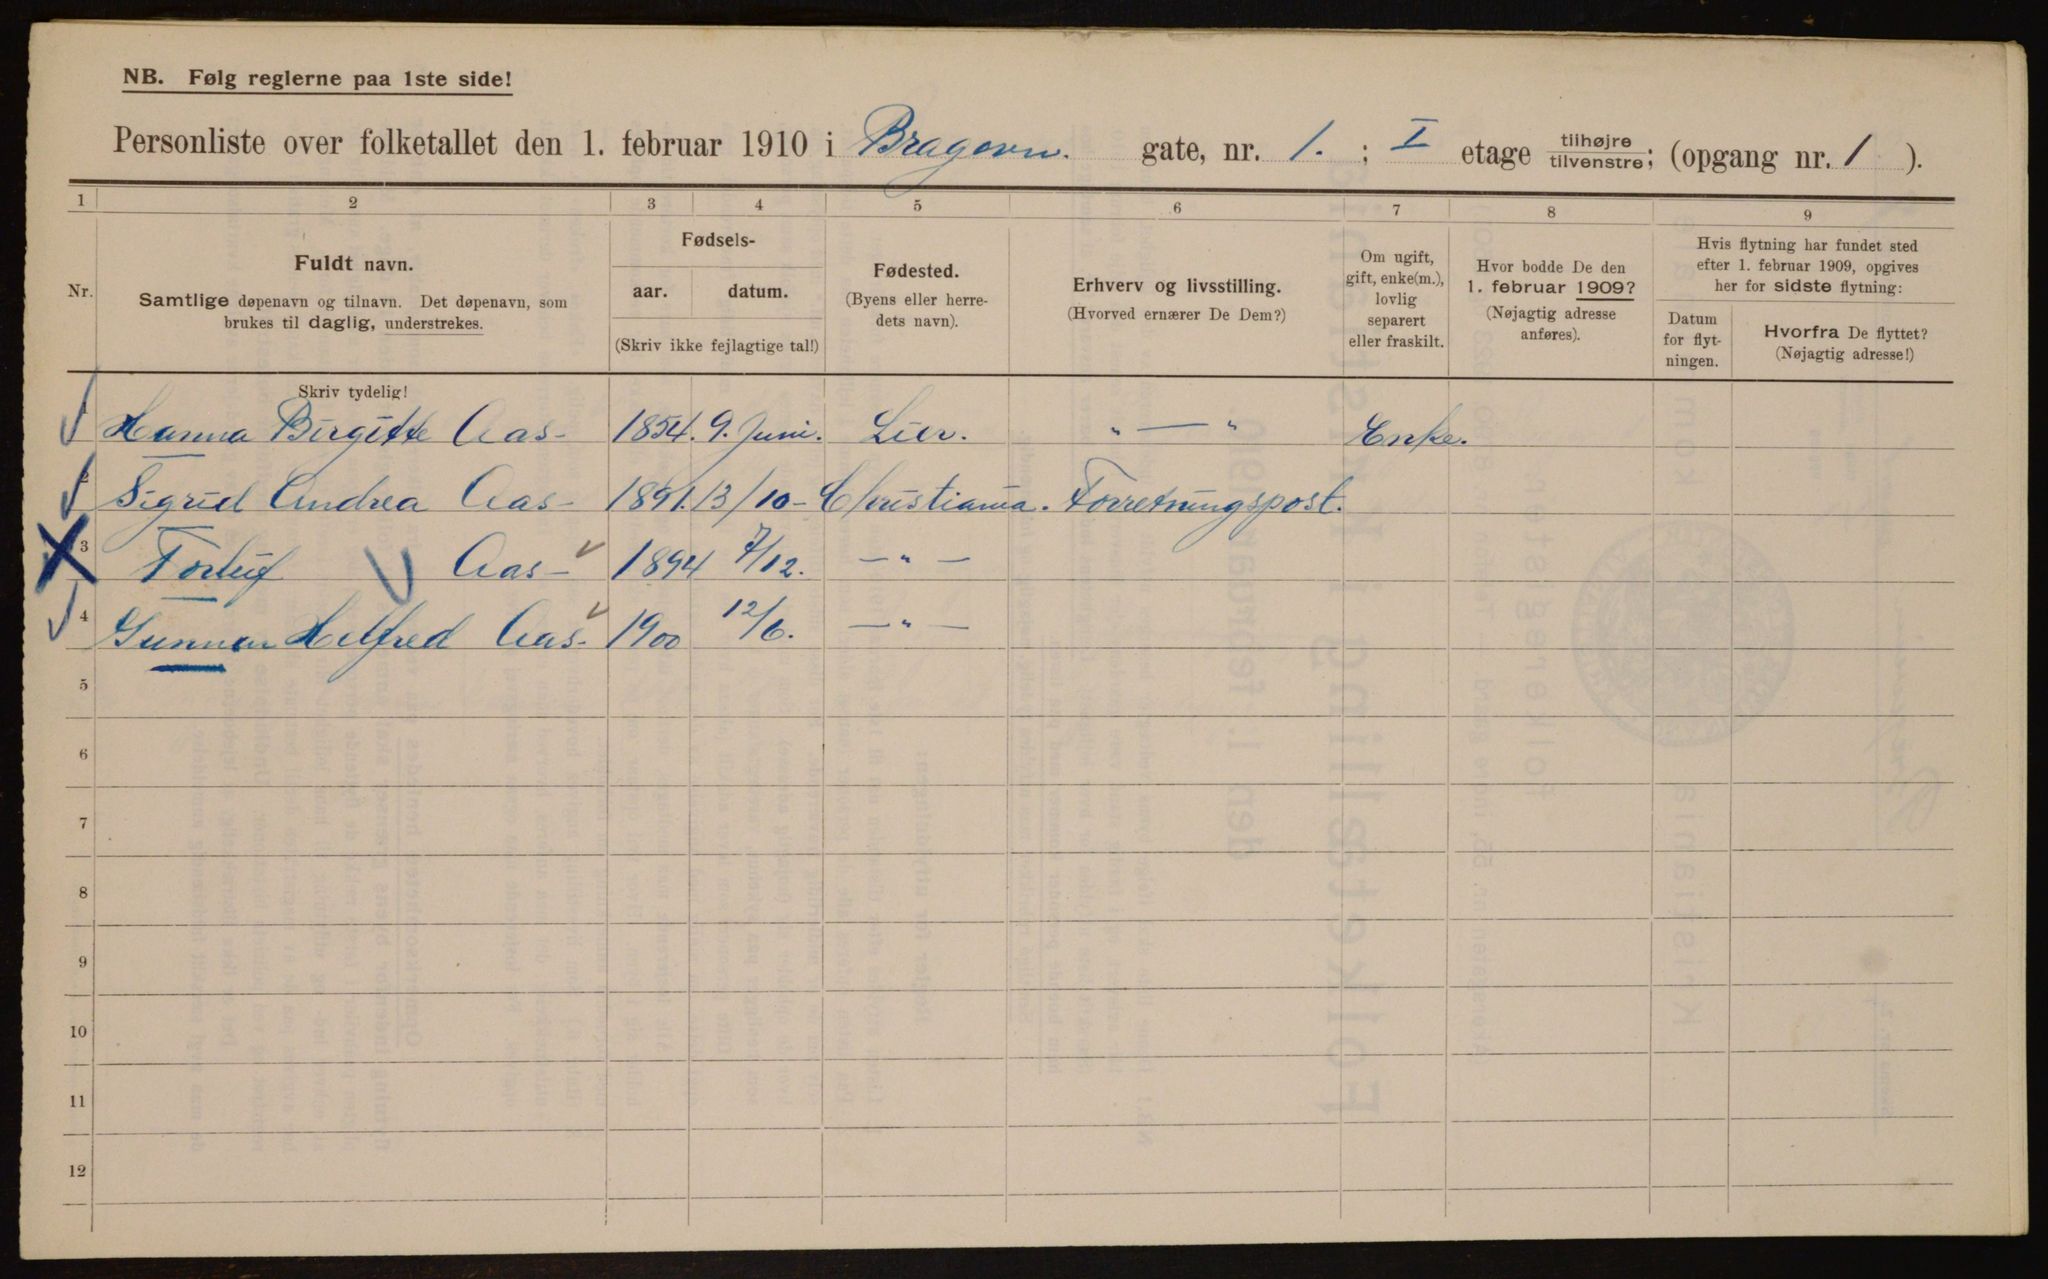 NB. Følg reglerne paa 1ste side!
Personliste over folketallet den 1. februar 1910 i Bragesvn. gate, nr. 1. ; I etage tilhøjre tilvenstre; (opgang nr. 1 ).
1 2 3 4 5 6 7 8 9
Nr.
Fuldt navn.
Samtlige døpenavn og tilnavn. Det døpenavn, som
brukes til daglig, understrekes.
Fødsels-
aar. datum.
(Skriv ikke fejlagtige tal!)
Fødested.
(Byens eller herre-
dets navn).
Erhverv og livsstilling.
(Hvorved ernærer De Dem?)
Om ugift,
gift, enke(m.),
lovlig
separert
eller fraskilt.
Hvor bodde De den
1. februar 1909?
(Nøjagtig adresse
anføres).
Hvis flytning har fundet sted
efter 1. februar 1909, opgives
her for sidste flytning:
Datum
for flyt-
ningen.
Hvorfra De flyttet?
(Nøjagtig adresse!)
Skriv tydelig!
1 Hanna Birgitte Aas - 1854. 9. Juni. Lier. " — " Enke.
2 Sigrid Andrea Aas - 1891. 13/10 - Christiania. Forretningspost.
3 Aas - 1894 7/12. — " —
4 Gunnar Helfred Aas - 1900 12/6. — " —
5
6
7
8
9
10
11
12